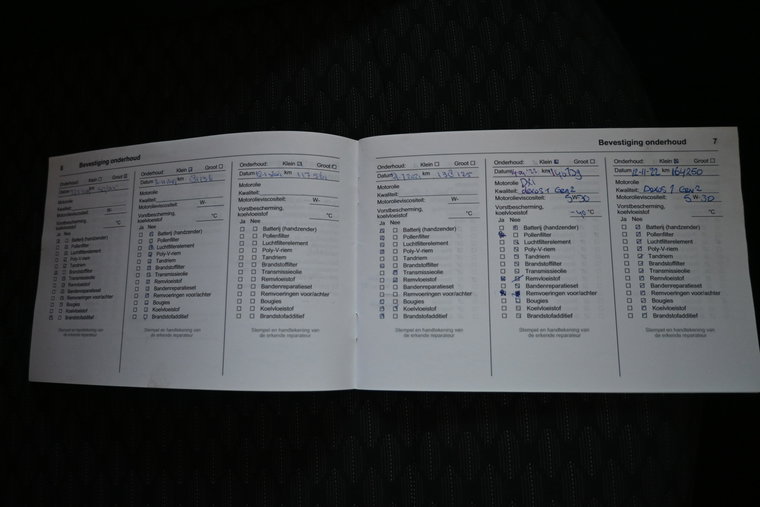 6 Bevestiging onderhoud
Onderhoud: Klein Groot
Datum km
Motorolie
Kwaliteit:
Motorolieviscositeit: W-
Vorstbescherming,
koelvloeistof °C
Ja Nee
Batterij (handzender)
Pollenfilter
Luchtfilterelement
Poly-V-riem
Tandriem
Brandstoffilter
Transmissieolie
Remvloeistof
Bandenreparatieset
Remvoeringen voor/achter
Bougies
Koelvloeistof
Brandstofadditief
Stempel en handtekening van
de erkende reparateur
Onderhoud: Klein Groot
Datum km
Motorolie
Kwaliteit:
Motorolieviscositeit: W-
Vorstbescherming,
koelvloeistof °C
Ja Nee
Batterij (handzender)
Pollenfilter
Luchtfilterelement
Poly-V-riem
Tandriem
Brandstoffilter
Transmissieolie
Remvloeistof
Bandenreparatieset
Remvoeringen voor/achter
Bougies
Koelvloeistof
Brandstofadditief
Stempel en handtekening van
de erkende reparateur
Onderhoud: Klein Groot
Datum km
Motorolie
Kwaliteit:
Motorolieviscositeit: W-
Vorstbescherming,
koelvloeistof °C
Ja Nee
Batterij (handzender)
Pollenfilter
Luchtfilterelement
Poly-V-riem
Tandriem
Brandstoffilter
Transmissieolie
Remvloeistof
Bandenreparatieset
Remvoeringen voor/achter
Bougies
Koelvloeistof
Brandstofadditief
Stempel en handtekening van
de erkende reparateur
Bevestiging onderhoud 7
Onderhoud: Klein Groot
Datum km
Motorolie
Kwaliteit:
Motorolieviscositeit: W-
Vorstbescherming,
koelvloeistof °C
Ja Nee
Batterij (handzender)
Pollenfilter
Luchtfilterelement
Poly-V-riem
Tandriem
Brandstoffilter
Transmissieolie
Remvloeistof
Bandenreparatieset
Remvoeringen voor/achter
Bougies
Koelvloeistof
Brandstofadditief
Stempel en handtekening van
de erkende reparateur
Onderhoud: Klein Groot
Datum km
Motorolie
Kwaliteit: dexos 1 Gen 2
Motorolieviscositeit: 5W30
Vorstbescherming,
koelvloeistof -40 °C
Ja Nee
Batterij (handzender)
Pollenfilter
Luchtfilterelement
Poly-V-riem
Tandriem
Brandstoffilter
Transmissieolie
Remvloeistof
Bandenreparatieset
Remvoeringen voor/achter
Bougies
Koelvloeistof
Brandstofadditief
Stempel en handtekening van
de erkende reparateur
Onderhoud: Klein Groot
Datum 12-11-'22 km 164250
Motorolie
Kwaliteit: Dexos 1 Gen 2
Motorolieviscositeit: 5 W-30
Vorstbescherming,
koelvloeistof °C
Ja Nee
Batterij (handzender)
Pollenfilter
Luchtfilterelement
Poly-V-riem
Tandriem
Brandstoffilter
Transmissieolie
Remvloeistof
Bandenreparatieset
Remvoeringen voor/achter
Bougies
Koelvloeistof
Brandstofadditief
Stempel en handtekening van
de erkende reparateur